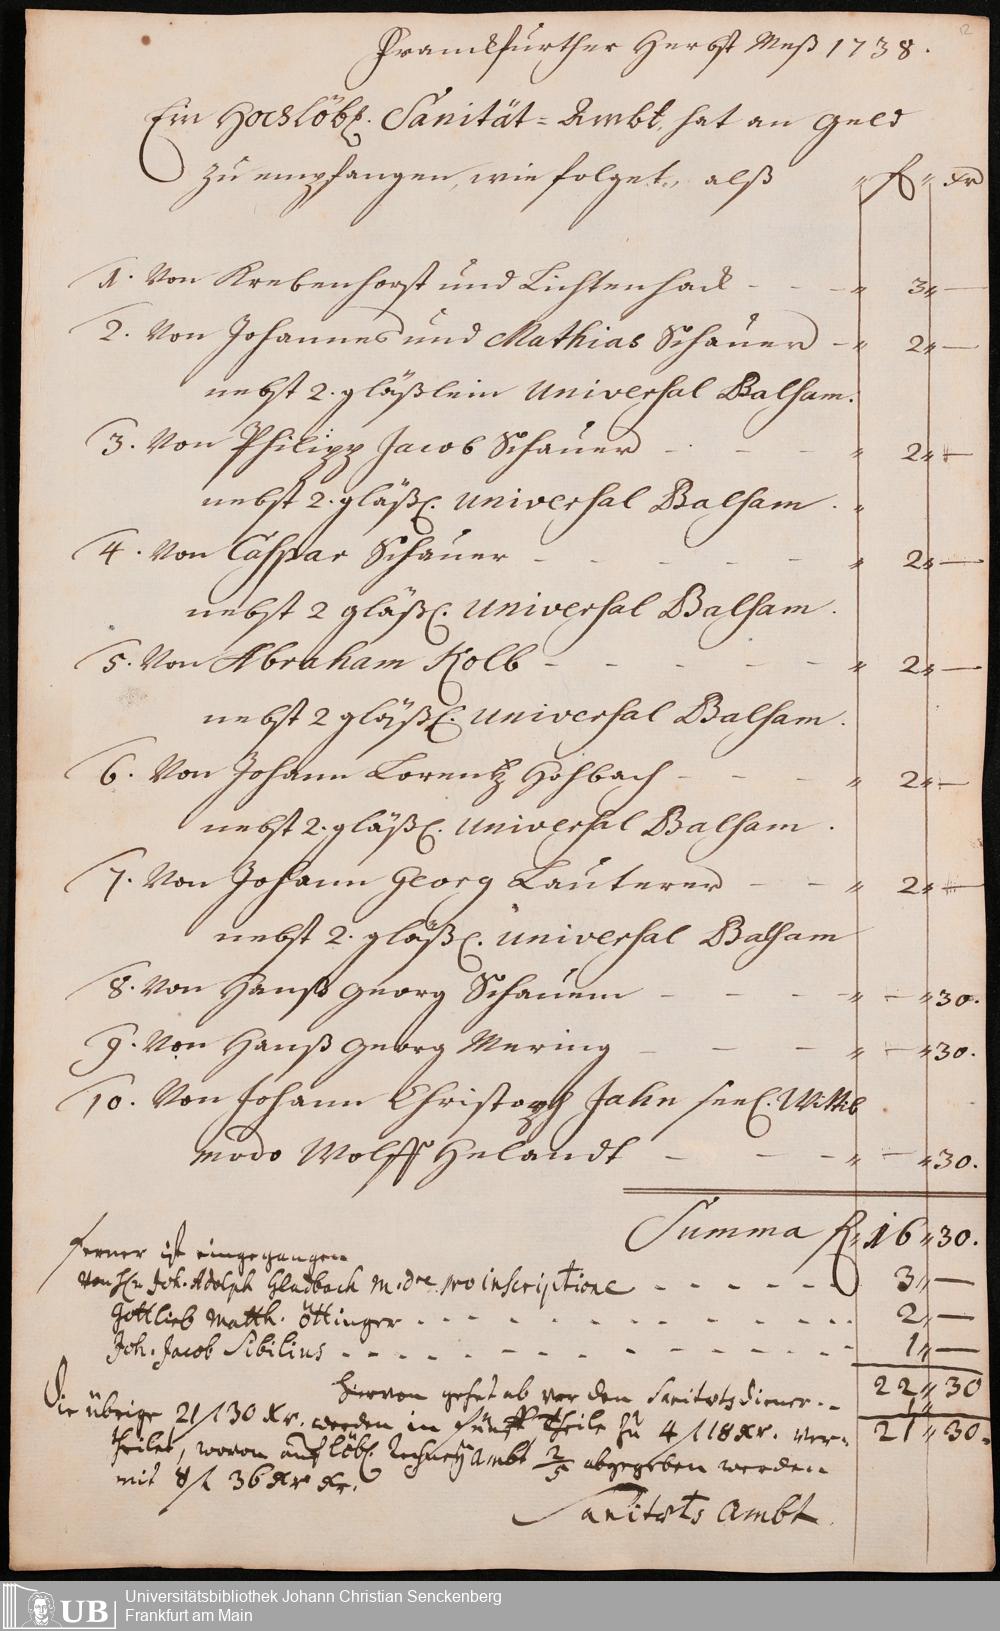 12
Franckfurther Herbst Meß 1738.
Ein Hochlöbl. Sanität=Ambt, hat an Geld
zu empfangen, wie folget., alß " f " Xr
1. Von Krebenhorst und Lichtenhack - - - " 3 " —
2. Von Johannes und Mathias Schauer - " 2 " —
nebst 2. gläßlein Universal Balsam.
3. Von Philipp Jacob Schauer - - - " 2 " —
nebst 2. gläßl. Universal Balsam. "
4. Von Caspar Schauer - - - - - " 2 " —
nebst 2 gläßl. Universal Balsam.
5. Von Abraham Kolb - - - - - - " 2 " —
nebst 2 gläßl. Universal Balsam.
6. Von Johann Lorentz Hohbach - - - " 2 " —
nebst 2. gläßl. Universal Balsam.
7. Von Johann Georg Lauterer - - " 2 " —
nebst 2. gläßl. Universal Balsam
8. Von Hanß Georg Schauern - - - " — " 30.
9. Von Hanß Georg Mering - - - " — " 30.
10. Von Johann Christoph Jahn seel. Wittib
modo Wolff Helandt - - - " — " 30.
Summa f " 16 " 30.
ferner ist eingegangen
von H. Joh. Adolph Gladbach M. dre pro inscriptione - - - - - - 3 " —
Gottlieb Matth. Öttinger - - - - - - - - - - - 2 " —
Joh. Jacob Sibilius - - - - - - - - - - - - 1 " —
22 " 30
hiervon gehet ab vor den Sanitäts diener - - 1 "
21 " 30.
Die übrige 21 f 30 Xr. werden in fünff Theile zu 4 f 18 Xr. ver=
theilet, wovon auf löbl. Rechney Ambt 2/5 abgegeben werden
mit 8 f 36 Xr.
Sanitäts Ambt.
UB
Universitätsbibliothek Johann Christian Senckenberg
Frankfurt am Main